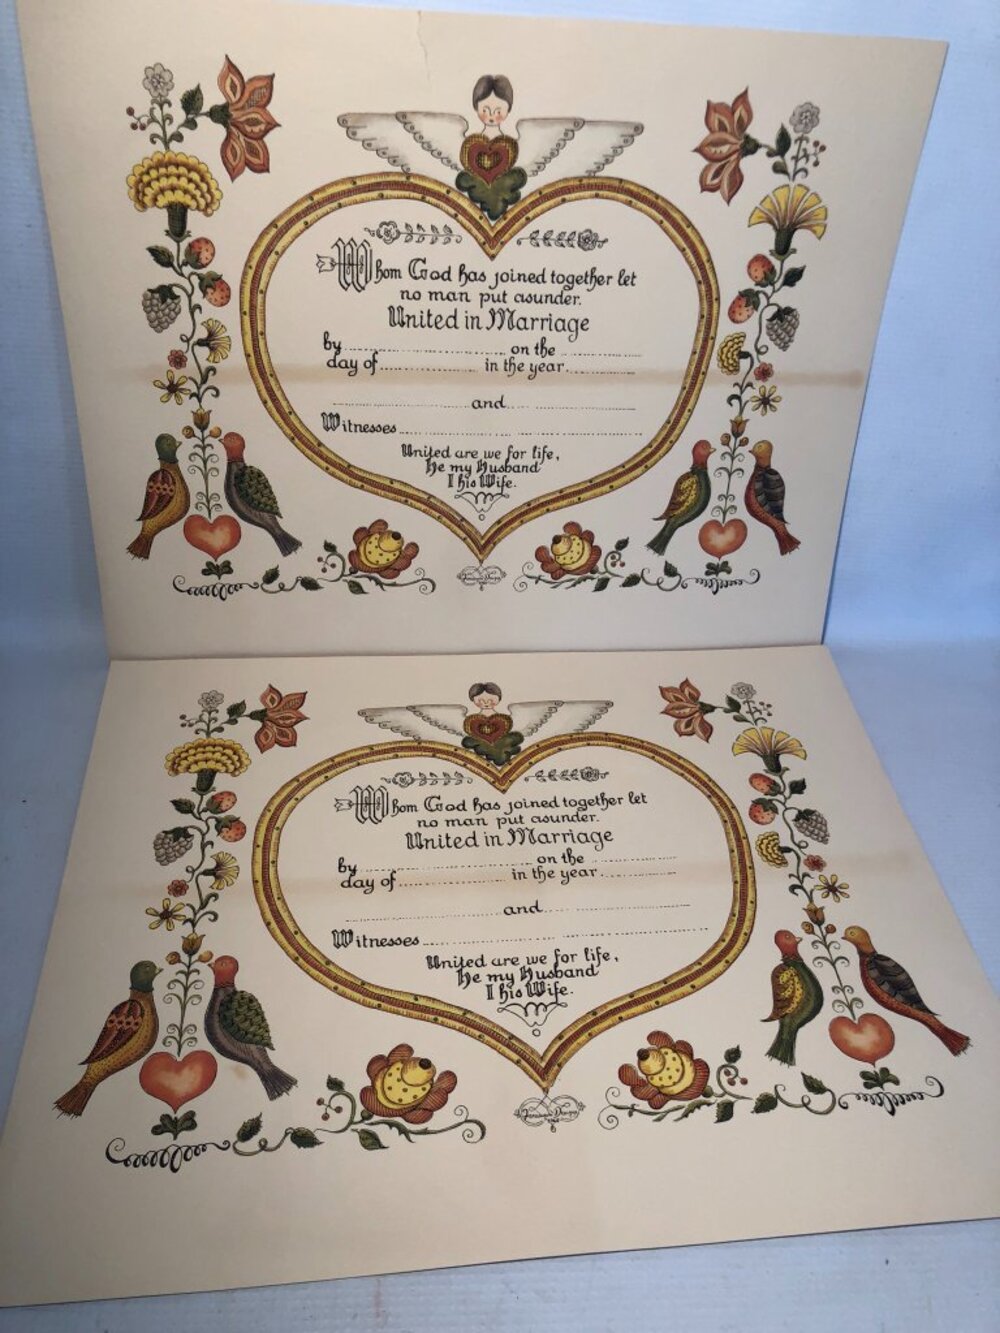 Whom God has joined together let
no man put asunder.
United in Marriage
by.............................. on the ...............
day of.................. in the year.............
.........................and.........................
Witnesses.............................................
United are we for life,
He my Husband
I his Wife.
Whom God has joined together let
no man put asunder.
United in Marriage
by.............................. on the ...............
day of.................. in the year.............
.........................and.........................
Witnesses.............................................
United are we for life,
He my Husband
I his Wife.